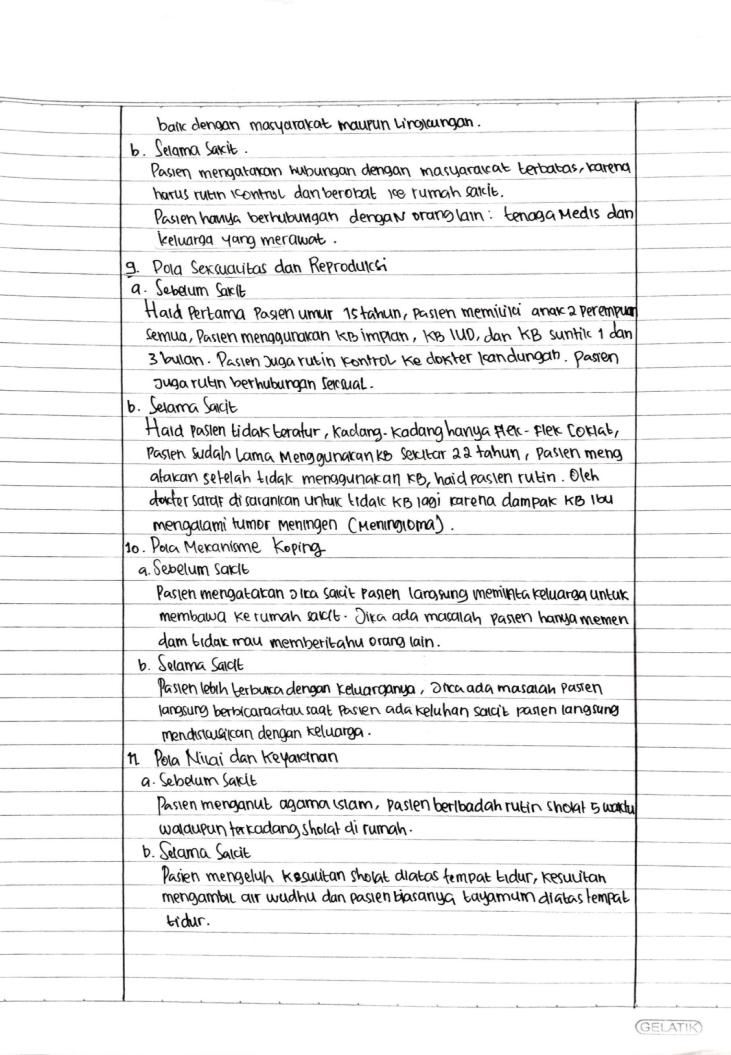 baik dengan masyarakat maupun Lingkungan.
b. Selama Sakit.
Pasien mengatakan hubungan dengan masyarakat terbatas, karena
harus rutin kontrol dan berobat ke rumah sakit.
Pasien hanya berhubungan dengan orang lain : tenaga Medis dan
keluarga yang merawat.
9. Pola Sexualitas dan Reproduksi
a. Sebelum Sakit
Haid Pertama Pasien umur 15 tahun, pasien memiliki anak 2 perempuan
semua, Pasien menggunakan KB implan, KB IUD, dan KB suntik 1 dan
3 bulan. Pasien Juga rutin kontrol ke dokter kandungan. Pasien
Juga rutin berhubungan sexual.
b. Selama Sakit
Haid pasien tidak teratur, Kadang-Kadang hanya flek-flek Coklat,
Pasien sudah Lama Menggunakan KB Sekitar 22 tahun, pasien meng
atakan setelah tidak menggunakan KB, haid pasien rutin. Oleh
dokter saraf disarankan untuk tidak KB lagi karena dampak KB Ibu
mengalami tumor meningen (Meningioma).
10. Pola Mekanisme Koping
a. Sebelum Sakit
Pasien mengatakan Jika sakit Pasien langsung meminta keluarga untuk
membawa ke rumah sakit. Jika ada masalah pasien hanya memen
dam tidak mau memberitahu orang lain.
b. Selama Sakit
Pasien lebih terbuka dengan keluarganya, Jika ada masalah Pasien
langsung berbicara atau saat Pasien ada keluhan sakit pasien langsung
mendiskusikan dengan keluarga.
11. Pola Nilai dan Keyakinan
a. Sebelum Sakit
Pasien menganut agama islam, pasien beribadah rutin sholat 5 waktu
walaupun terkadang sholat di rumah.
b. Selama Sakit
Pasien mengeluh kesulitan sholat diatas tempat tidur, kesulitan
mengambil air wudhu dan pasien biasanya tayamum diatas tempat
tidur.
GELATIK